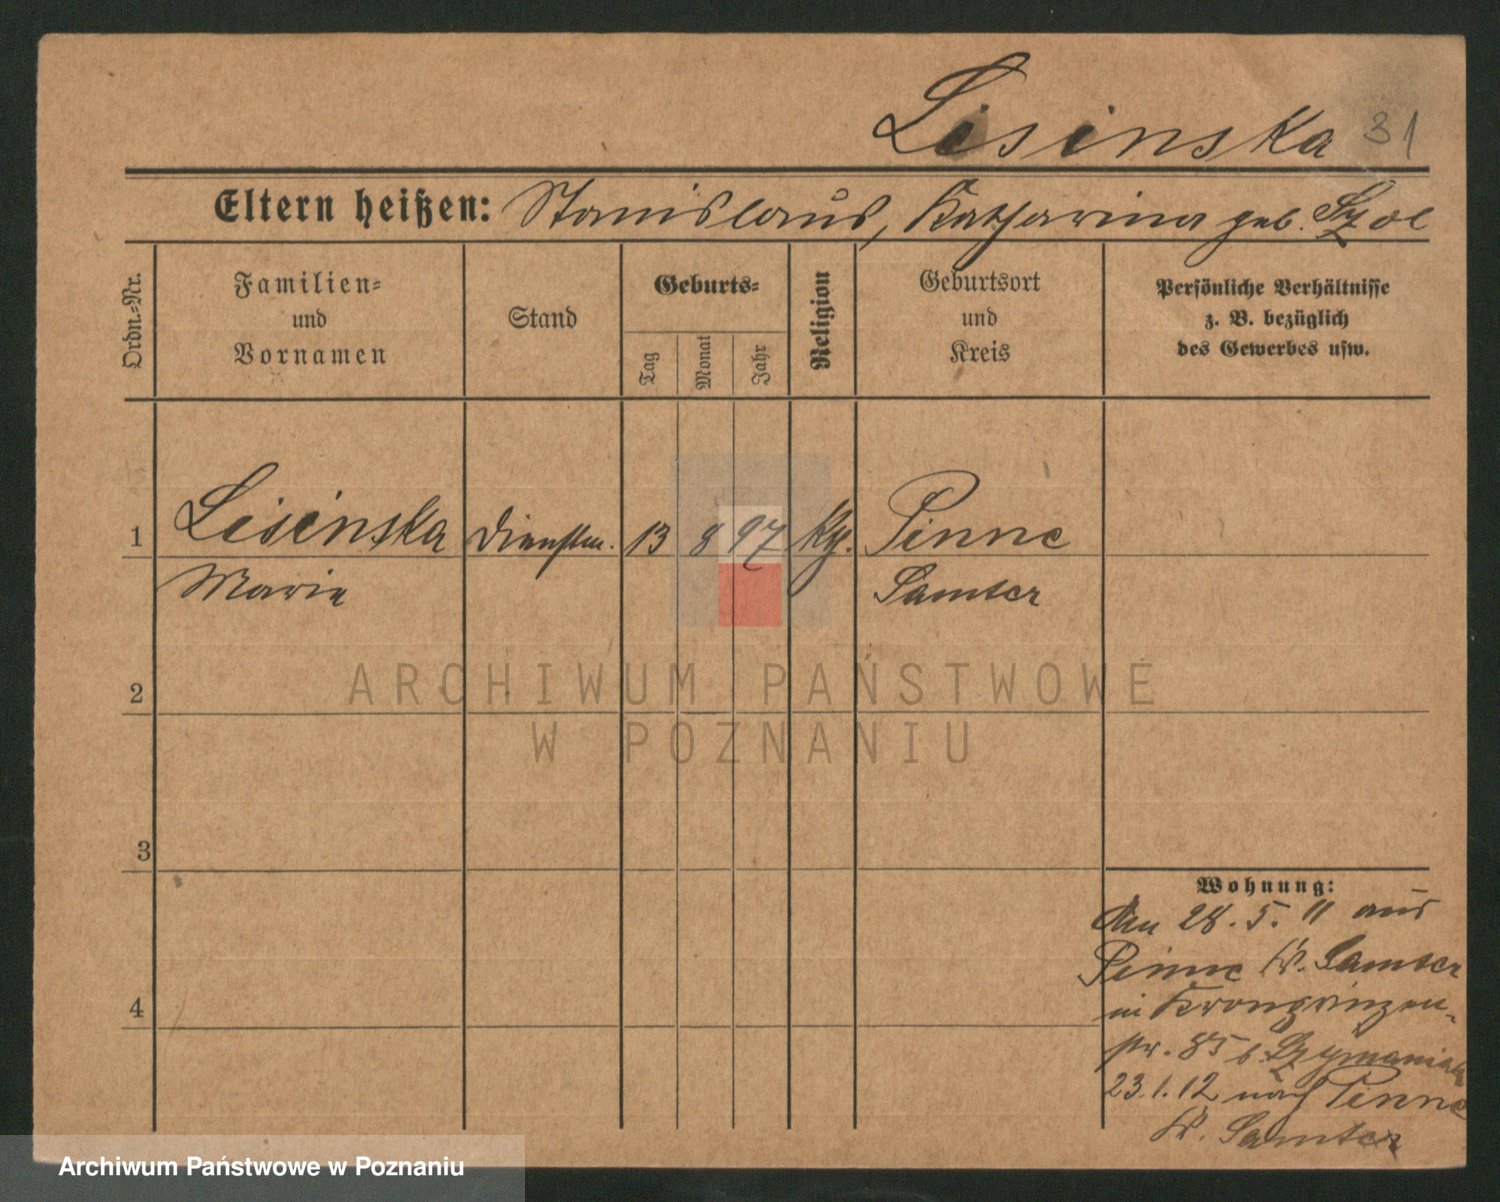 Lisinska 31
Eltern heißen: Stanislaus, Katharina geb. Szol
Ordn.-Nr.
Familien-
und
Vornamen
Stand
Geburts-
Tag
Monat
Jahr
Religion
Geburtsort
und
Kreis
Persönliche Verhältnisse
z. B. bezüglich
des Gewerbes usw.
1 Lisinska Dienstm. 13 8 97 Pinne
Marie Samter
2
ARCHIWUM PAŃSTWOWE
W POZNANIU
3
Wohnung:
28. 5. 11 aus
Pinne Kr. Samter
in Kronprinzen-
str. 85 b. Szymaniak
4
23.1.12 nach Pinne
Kr. Samter
Archiwum Państwowe w Poznaniu